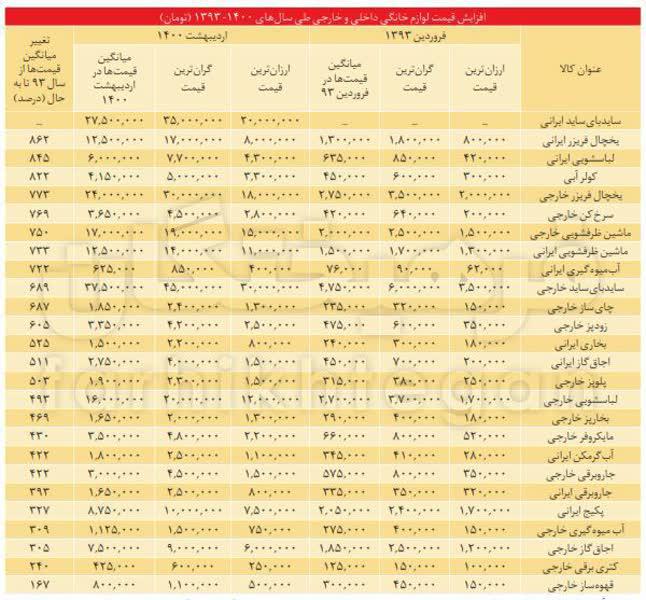 افزایش قیمت لوازم خانگی داخلی و خارجی طی سال‌های ۱۴۰۰-۱۳۹۳ (تومان)
عنوان کالا فروردین ۱۳۹۳ اردیبهشت ۱۴۰۰ تغییر میانگین قیمت‌ها از سال ۹۳ تا به حال (درصد)
ارزان‌ترین قیمت گران‌ترین قیمت میانگین قیمت‌ها در فروردین ۹۳ ارزان‌ترین قیمت گران‌ترین قیمت میانگین قیمت‌ها در اردیبهشت ۱۴۰۰
ساید‌بای‌ساید ایرانی _ _ _ ۲۰,۰۰۰,۰۰۰ ۳۵,۰۰۰,۰۰۰ ۲۷,۵۰۰,۰۰۰ _
یخچال فریزر ایرانی ۸۰۰,۰۰۰ ۱,۸۰۰,۰۰۰ ۱,۳۰۰,۰۰۰ ۸,۰۰۰,۰۰۰ ۱۷,۰۰۰,۰۰۰ ۱۲,۵۰۰,۰۰۰ ۸۶۲
لباسشویی ایرانی ۴۲۰,۰۰۰ ۸۵۰,۰۰۰ ۶۳۵,۰۰۰ ۴,۳۰۰,۰۰۰ ۷,۷۰۰,۰۰۰ ۶,۰۰۰,۰۰۰ ۸۴۵
کولر آبی ۳۰۰,۰۰۰ ۶۰۰,۰۰۰ ۴۵۰,۰۰۰ ۳,۳۰۰,۰۰۰ ۵,۰۰۰,۰۰۰ ۴,۱۵۰,۰۰۰ ۸۲۲
یخچال فریزر خارجی ۲,۰۰۰,۰۰۰ ۳,۵۰۰,۰۰۰ ۲,۷۵۰,۰۰۰ ۱۸,۰۰۰,۰۰۰ ۳۰,۰۰۰,۰۰۰ ۲۴,۰۰۰,۰۰۰ ۷۷۳
سرخ‌کن خارجی ۲۰۰,۰۰۰ ۶۴۰,۰۰۰ ۴۲۰,۰۰۰ ۲,۸۰۰,۰۰۰ ۴,۵۰۰,۰۰۰ ۳,۶۵۰,۰۰۰ ۷۶۹
ماشین ظرفشویی خارجی ۱,۵۰۰,۰۰۰ ۲,۵۰۰,۰۰۰ ۲,۰۰۰,۰۰۰ ۱۵,۰۰۰,۰۰۰ ۱۹,۰۰۰,۰۰۰ ۱۷,۰۰۰,۰۰۰ ۷۵۰
ماشین ظرفشویی ایرانی ۱,۳۰۰,۰۰۰ ۱,۷۰۰,۰۰۰ ۱,۵۰۰,۰۰۰ ۱۱,۰۰۰,۰۰۰ ۱۴,۰۰۰,۰۰۰ ۱۲,۵۰۰,۰۰۰ ۷۳۳
آب‌میوه‌گیری ایرانی ۶۲,۰۰۰ ۹۰,۰۰۰ ۷۶,۰۰۰ ۴۰۰,۰۰۰ ۸۵۰,۰۰۰ ۶۲۵,۰۰۰ ۷۲۲
ساید‌بای‌ساید خارجی ۳,۵۰۰,۰۰۰ ۶,۰۰۰,۰۰۰ ۴,۷۵۰,۰۰۰ ۳۰,۰۰۰,۰۰۰ ۴۵,۰۰۰,۰۰۰ ۳۷,۵۰۰,۰۰۰ ۶۸۹
چای‌ساز خارجی ۱۵۰,۰۰۰ ۳۲۰,۰۰۰ ۲۳۵,۰۰۰ ۱,۳۰۰,۰۰۰ ۲,۴۰۰,۰۰۰ ۱,۸۵۰,۰۰۰ ۶۸۷
زودپز خارجی ۳۵۰,۰۰۰ ۶۰۰,۰۰۰ ۴۷۵,۰۰۰ ۲,۵۰۰,۰۰۰ ۴,۲۰۰,۰۰۰ ۳,۳۵۰,۰۰۰ ۶۰۵
بخاری ایرانی ۱۸۰,۰۰۰ ۳۰۰,۰۰۰ ۲۴۰,۰۰۰ ۸۰۰,۰۰۰ ۲,۲۰۰,۰۰۰ ۱,۵۰۰,۰۰۰ ۵۲۵
اجاق‌گاز ایرانی ۲۰۰,۰۰۰ ۷۰۰,۰۰۰ ۴۵۰,۰۰۰ ۱,۵۰۰,۰۰۰ ۴,۰۰۰,۰۰۰ ۲,۷۵۰,۰۰۰ ۵۱۱
پلوپز خارجی ۲۵۰,۰۰۰ ۳۸۰,۰۰۰ ۳۱۵,۰۰۰ ۱,۵۰۰,۰۰۰ ۲,۳۰۰,۰۰۰ ۱,۹۰۰,۰۰۰ ۵۰۳
لباسشویی خارجی ۱,۷۰۰,۰۰۰ ۳,۷۰۰,۰۰۰ ۲,۷۰۰,۰۰۰ ۱۲,۰۰۰,۰۰۰ ۲۰,۰۰۰,۰۰۰ ۱۶,۰۰۰,۰۰۰ ۴۹۳
بخارپز خارجی ۱۸۰,۰۰۰ ۴۰۰,۰۰۰ ۲۹۰,۰۰۰ ۱,۳۰۰,۰۰۰ ۲,۰۰۰,۰۰۰ ۱,۶۵۰,۰۰۰ ۴۶۹
مایکروفر خارجی ۵۲۰,۰۰۰ ۸۰۰,۰۰۰ ۶۶۰,۰۰۰ ۲,۲۰۰,۰۰۰ ۴,۸۰۰,۰۰۰ ۳,۵۰۰,۰۰۰ ۴۳۰
آب گرمکن ایرانی ۲۸۰,۰۰۰ ۴۱۰,۰۰۰ ۳۴۵,۰۰۰ ۱,۱۰۰,۰۰۰ ۲,۵۰۰,۰۰۰ ۱,۸۰۰,۰۰۰ ۴۲۲
جاروبرقی خارجی ۳۵۰,۰۰۰ ۸۰۰,۰۰۰ ۵۷۵,۰۰۰ ۱,۵۰۰,۰۰۰ ۴,۵۰۰,۰۰۰ ۳,۰۰۰,۰۰۰ ۴۲۲
جاروبرقی ایرانی ۳۲۰,۰۰۰ ۳۵۰,۰۰۰ ۳۳۵,۰۰۰ ۸۰۰,۰۰۰ ۲,۵۰۰,۰۰۰ ۱,۶۵۰,۰۰۰ ۳۹۳
پکیج ایرانی ۱,۷۰۰,۰۰۰ ۲,۴۰۰,۰۰۰ ۲,۰۵۰,۰۰۰ ۷,۵۰۰,۰۰۰ ۱۰,۰۰۰,۰۰۰ ۸,۷۵۰,۰۰۰ ۳۲۷
آب میوه‌گیری خارجی ۱۵۰,۰۰۰ ۴۰۰,۰۰۰ ۲۷۵,۰۰۰ ۷۵۰,۰۰۰ ۱,۵۰۰,۰۰۰ ۱,۱۲۵,۰۰۰ ۳۰۹
اجاق‌گاز خارجی ۱,۲۰۰,۰۰۰ ۲,۵۰۰,۰۰۰ ۱,۸۵۰,۰۰۰ ۶,۰۰۰,۰۰۰ ۹,۰۰۰,۰۰۰ ۷,۵۰۰,۰۰۰ ۳۰۵
کتری برقی خارجی ۱۰۰,۰۰۰ ۱۵۰,۰۰۰ ۱۲۵,۰۰۰ ۲۵۰,۰۰۰ ۶۰۰,۰۰۰ ۴۲۵,۰۰۰ ۲۴۰
قهوه‌ساز خارجی ۱۵۰,۰۰۰ ۴۵۰,۰۰۰ ۳۰۰,۰۰۰ ۵۰۰,۰۰۰ ۱,۱۰۰,۰۰۰ ۸۰۰,۰۰۰ ۱۶۷